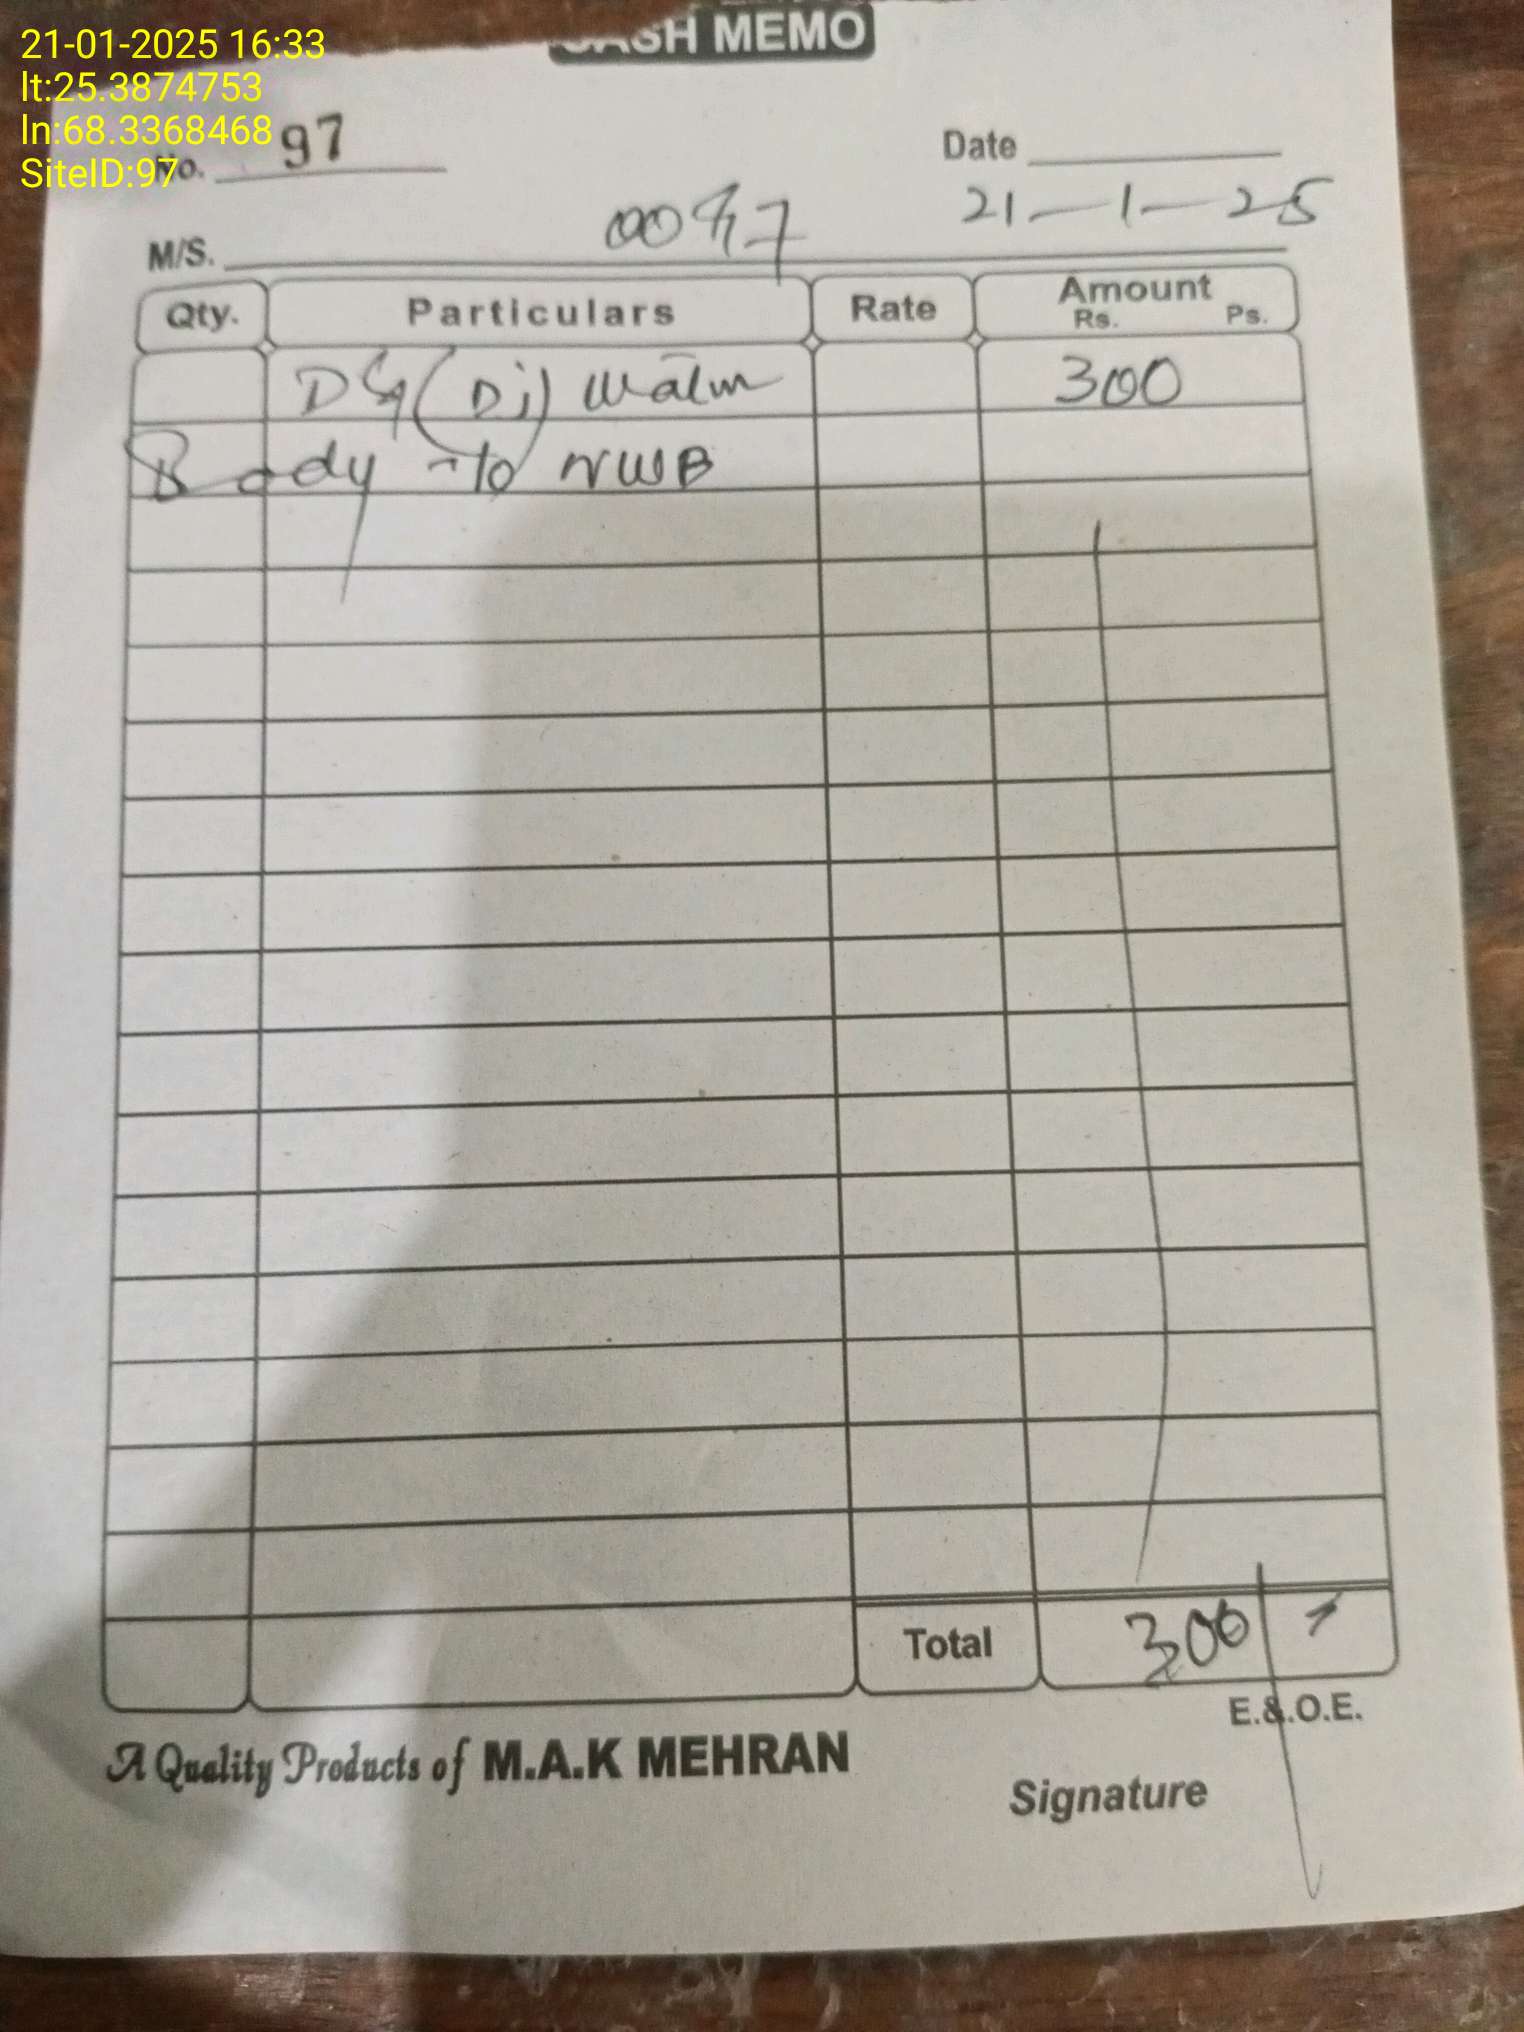 21-01-2025 16:33
lt:25.3874753
ln:68.3368468
SiteID:97
CASH MEMO
No. 97
Date 21-1-25
M/S. 0097
Qty. Particulars Rate Amount
Rs. Ps.
DG (Di) 300
Body to NWB
Total 300
E.&.O.E.
A Quality Products of M.A.K MEHRAN
Signature